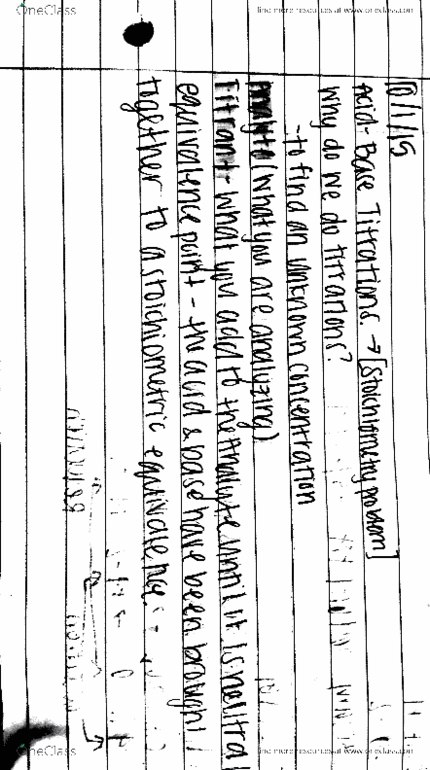 OneClass
find more resources at www.oneclass.com
10/1/15
Acid-Base Titrations. → [Stoichiometry problem]
Why do we do titrations?
-to find an unknown concentration
Analyte (what you are analyzing)
Titrant - what you add to the analyte until it is neutral
equivalence point - the acid & base have been brought
together to a stoichiometric equivalence.
OneClass
find more resources at www.oneclass.com